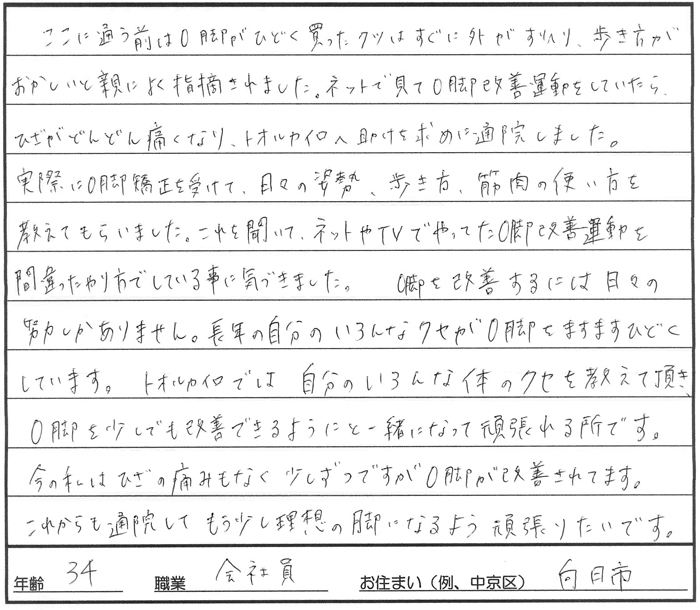 ここに通う前はO脚がひどく買ったクツはすぐに外がすりへり、歩き方が
おかしいと親によく指摘されました。ネットで見てO脚改善運動をしていたら、
ひざがどんどん痛くなり、トオルカイロへ助けを求めに通院しました。
実際にO脚矯正を受けて、日々の姿勢、歩き方、筋肉の使い方を
教えてもらいました。これを聞いて、ネットやTVでやってたO脚改善運動を
間違ったやり方でしている事に気づきました。 O脚を改善するには日々の
努力しかありません。長年の自分のいろんなクセがO脚をますますひどく
しています。トオルカイロでは自分のいろんな体のクセを教えて頂き、
O脚を少しでも改善できるようにと一緒になって頑張れる所です。
今の私はひざの痛みもなく少しずつですがO脚が改善されてます。
これからも通院してもう少し理想の脚になるよう頑張りたいです。
年齢 34 職業 会社員 お住まい（例、中京区） 向日市